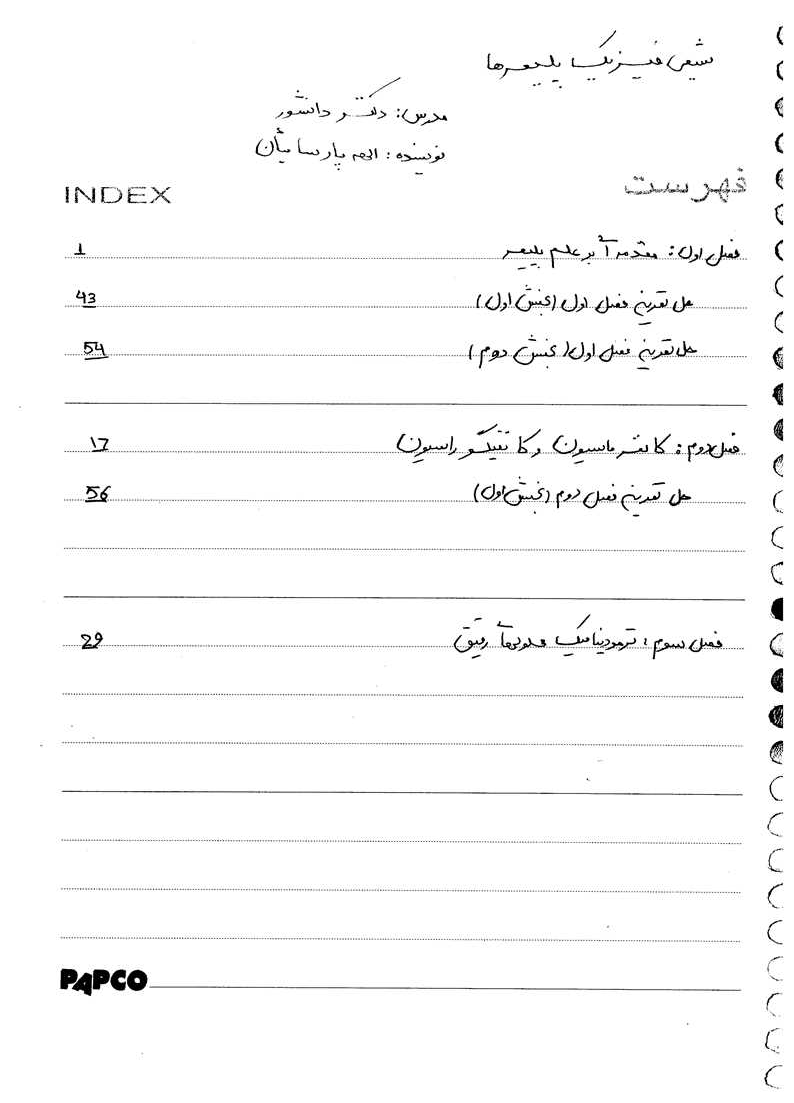 شیمی فیزیک پلیمرها
مدرس: دکتر دانشور
نویسنده: الهه پارسائیان
INDEX فهرست
فصل اول: مقدمه ای بر علم پلیمر 1
حل تمرین فصل اول (بخش اول) 43
حل تمرین فصل اول (بخش دوم) 54
فصل دوم: کانفرماسیون و کانفیگوراسیون 17
حل تمرین فصل دوم (بخش اول) 56
فصل سوم: ترمودینامیک محلولهای رقیق 29
PAPCO